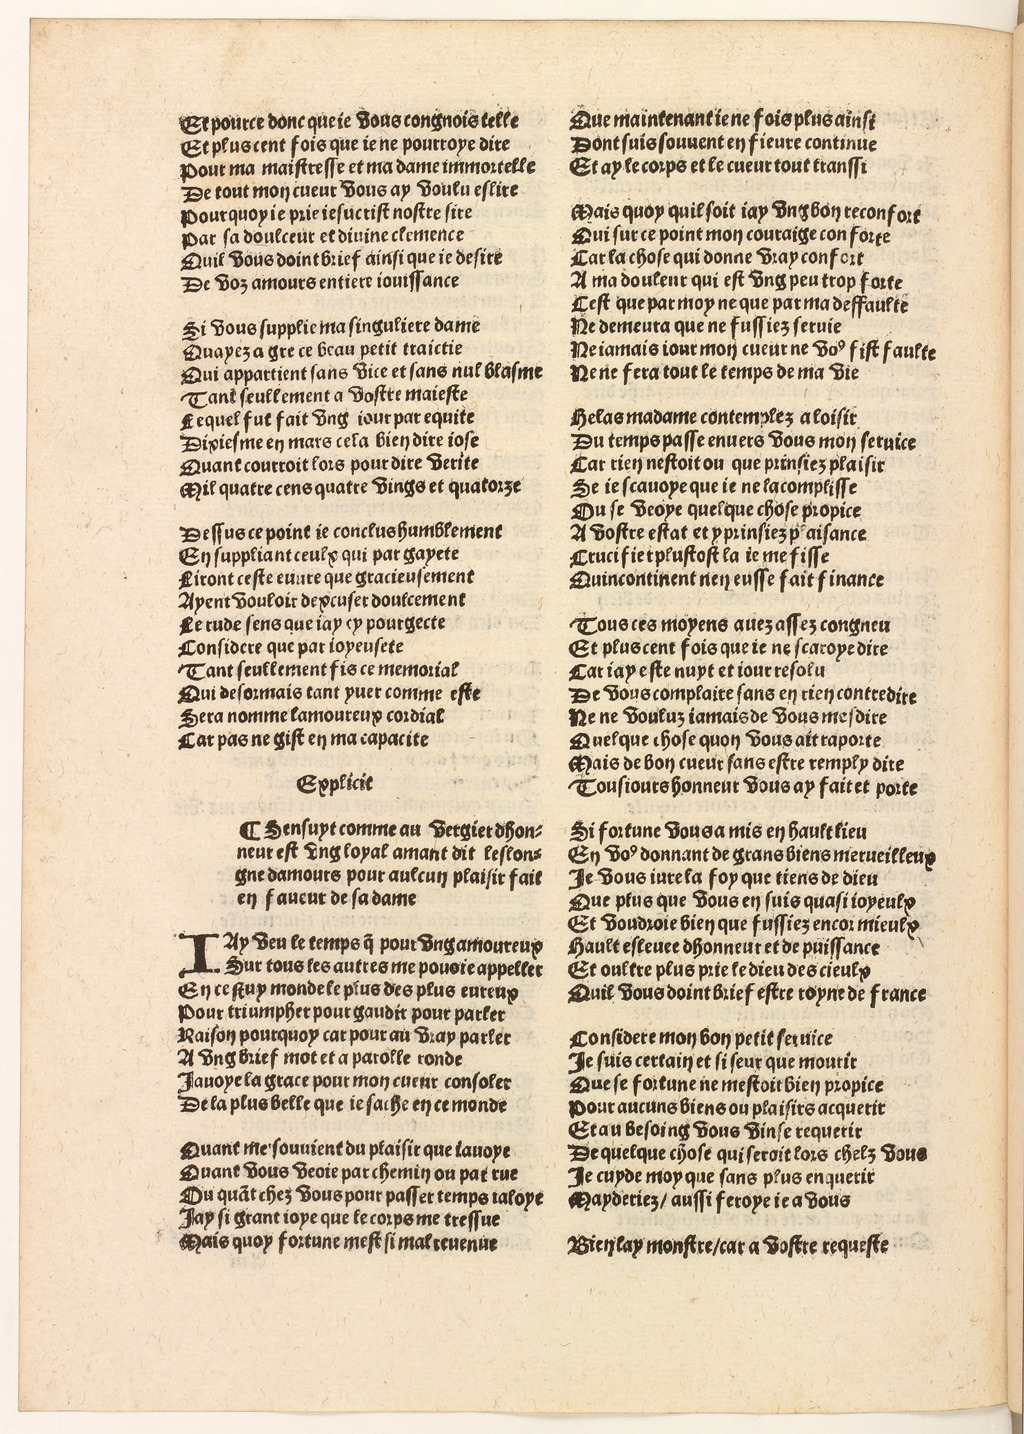 Et pource donc que ie vous congnois telle
Et plus cent fois que ie ne pourroye dire
Pour ma maistresse et ma dame immortelle
De tout mon cueur vous ay voulu eslire
Pourquoy ie prie iesucrist nostre sire
Par sa doulceur et diuine clemence
Quil vous doint brief ainsi que ie desire
De voz amours entiere iouissance
Si vous supplie ma singuliere dame
Quayez a gre ce beau petit traictie
Qui appartient sans vice et sans nul blasme
Tant seullement a vostre maieste
Lequel fut fait vng iour par equite
Dixiesme en mars cela bien dire iose
Quant courroit lors pour dire verite
Mil quatre cens quatre vings et quatorze
Dessus ce point ie conclus humblement
En suppliant ceulx qui par gayete
Liront ceste euure que gracieusement
Ayent vouloir dexcuser doulcement
Le rude sens que iay cy pourgecte
Considere que par ioyeusete
Tant seullement fis ce memorial
Qui desormais tant yuer comme este
Sera nomme lamoureux cordial
Car pas ne gist en ma capacite
Explicit
¶ Sensuyt comme au vergier dhon-
neur est vng loyal amant dit leslon-
gne damours pour aulcun plaisir fait
en faueur de sa dame
IAy veu le temps q̃ pour vng amoureux
Sur tous les autres me pouoie appeller
En cestuy monde le plus des plus eureux
Pour triumpher pour gaudir pour parler
Raison pourquoy car pour au vray parler
A vng brief mot et a parolle ronde
Jauoye la grace pour mon cueur consoler
De la plus belle que ie sache en ce monde
Quant me souuient du plaisir que iauoye
Quant vous veoie par chemin ou par rue
Ou quãt chez vous pour passer temps ialoye
Jay si grant ioye que le corps me tressue
Mais quoy fortune mest si mal reuenue
Que maintenant ie ne fois plus ainsi
Dont suis souuent en fieure continue
Et ay le corps et le cueur tout transsi
Mais quoy quil soit iay vng bon reconfort
Qui sur ce point mon couraige conforte
Car la chose qui donne vray confort
A ma douleur qui est vng peu trop forte
Cest que par moy ne que par ma deffaulte
Ne demeura que ne fussiez seruie
Ne iamais iour mon cueur ne voꝰ fist faulte
Ne ne fera tout le temps de ma vie
Helas madame contemplez a loisir
Du temps passe enuers vous mon seruice
Car rien nestoit ou que prinsiez plaisir
Se ie scauoye que ie ne lacomplisse
Ou se veoye quelque chose propice
A vostre estat et y prinsiez plaisance
Crucifier plustost la ie me fisse
Quincontinent nen eusse fait finance
Tous ces moyens auez assez congneu
Et plus cent fois que ie ne scaroye dire
Car iay este nuyt et iour resolu
De vous complaire sans en rien contredire
Ne ne vouluz iamais de vous mesdire
Quelque chose quon vous ait raporte
Mais de bon cueur sans estre remply dire
Tousiours honneur vous ay fait et porte
Si fortune vous a mis en hault lieu
En voꝰ donnant de grans biens merueilleux
Je vous iure la foy que tiens de dieu
Que plus que vous en suis quasi ioyeulx
Et voudroie bien que fussiez encor mieulx
Hault esleuee dhonneur et de puissance
Et oultre plus prie le dieu des cieulx
Quil vous doint brief estre royne de france
Considere mon bon petit seruice
Je suis certain et si seur que mourir
Que se fortune ne mestoit bien propice
Pour aucuns biens ou plaisirs acquerir
Et au besoing vous vinse requerir
De quelque chose qui seroit lors chelz vous
Je cuyde moy que sans plus enquerir
Mayderiez/ aussi feroye ie a vous
Bien lay monstre/car a vostre requeste